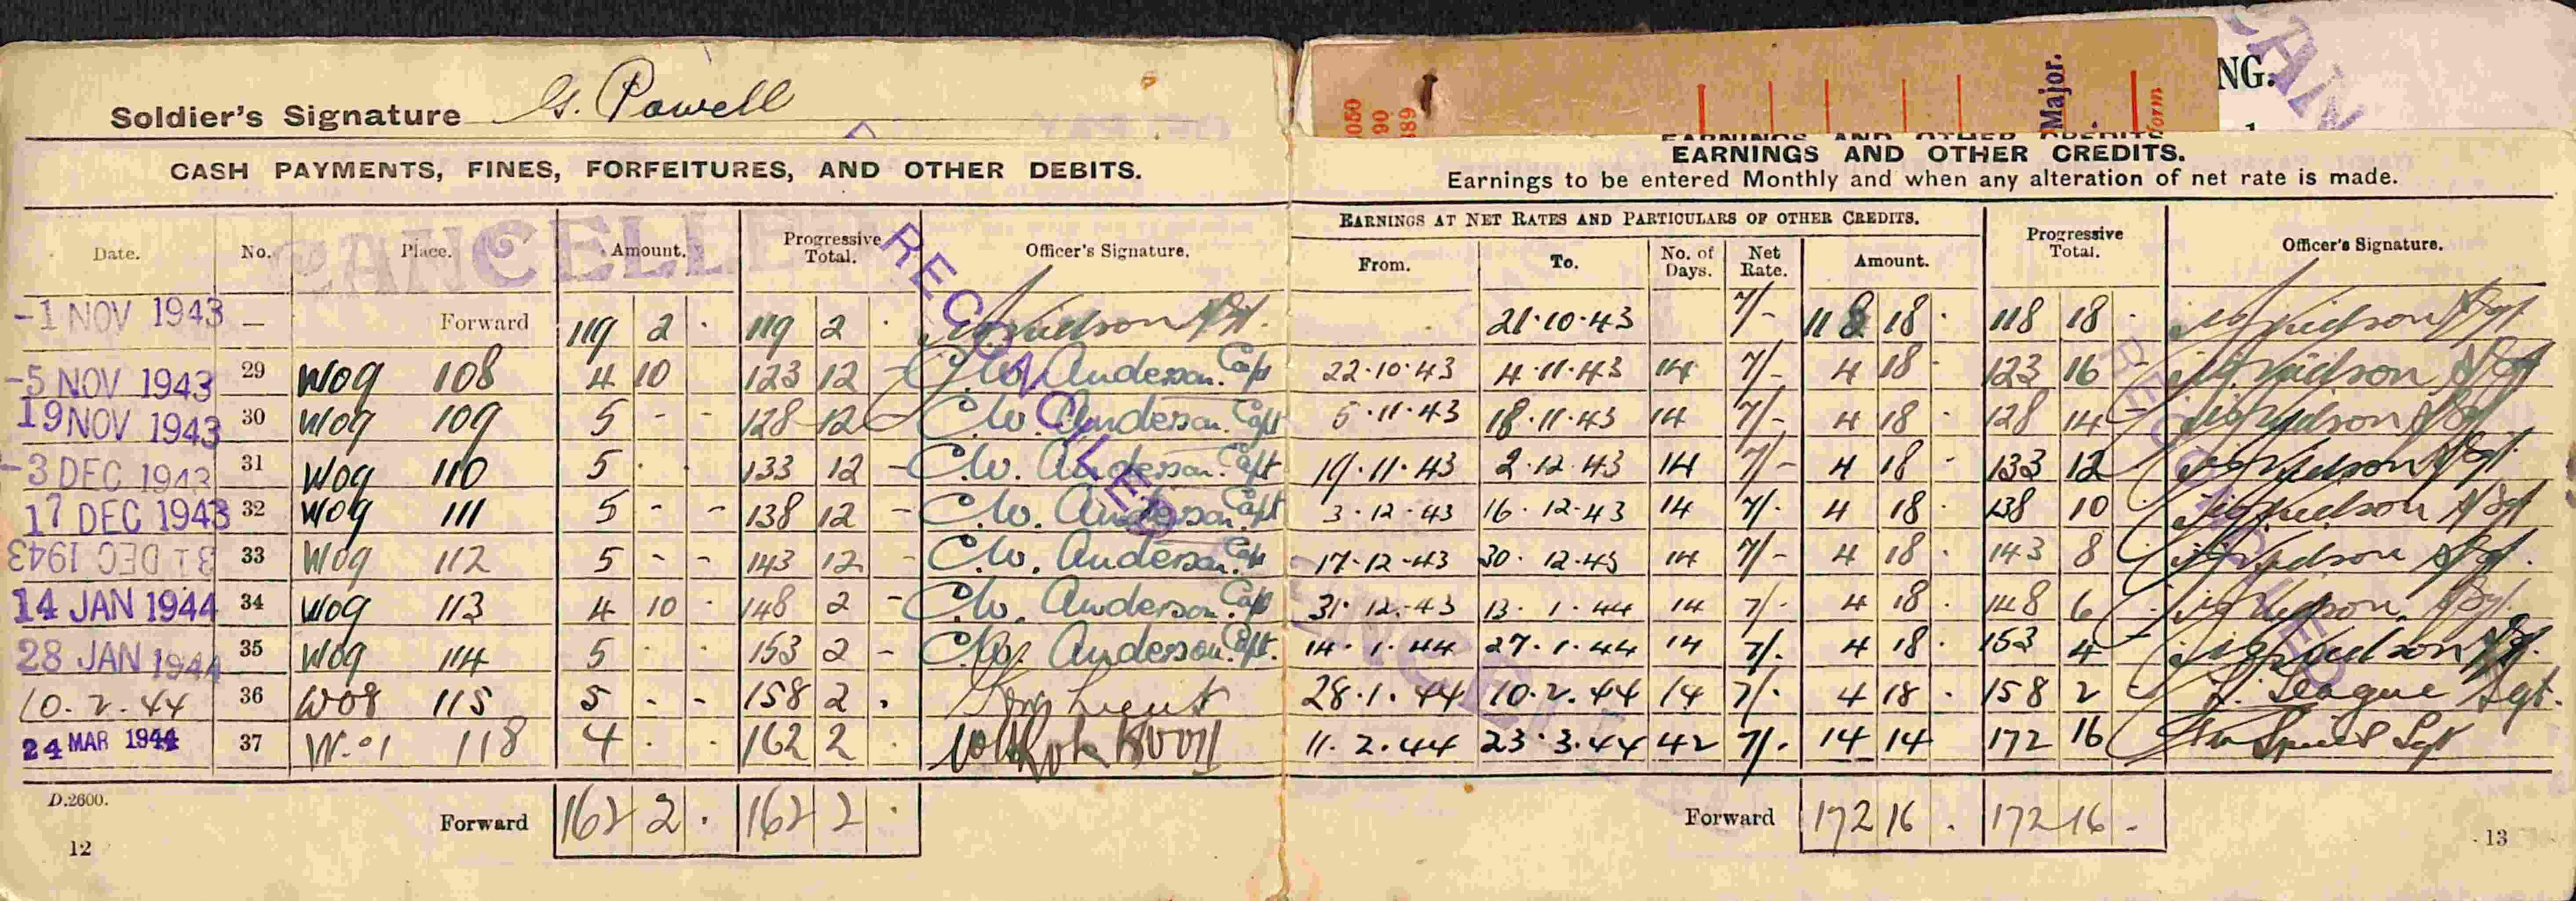 Soldier's Signature G. Powell
CASH PAYMENTS, FINES, FORFEITURES, AND OTHER DEBITS.
Date. No. Place. Amount. Progressive Total. Officer's Signature.
-1 NOV 1943 — Forward 119 2 · 119 2 ·
-5 NOV 1943 29 WOg 108 4 10 123 12 - C.W. Anderson. Capt
19 NOV 1943 30 WOg 109 5 - - 128 12 C.W. Anderson. Capt
-3 DEC 1943 31 WOg 110 5 · · 133 12 - C.W. Anderson. Capt
17 DEC 1943 32 WOg 111 5 - - 138 12 - C.W. Anderson. Capt
31 DEC 1943 33 WOg 112 5 - - 143 12 - C.W. Anderson. Capt
14 JAN 1944 34 WOg 113 4 10 · 148 2 - C.W. Anderson. Capt
28 JAN 1944 35 WOg 114 5 · · 153 2 - C.W. Anderson. Capt.
10. 2. 44 36 WOg 115 5 - - 158 2 .
24 MAR 1944 37 118 4 · · 162 2 ·
D.2600.
Forward 162 2 · 162 2 ·
12
CANCELLED
RECONCILED
050
90
389
Major.
form
NG.
CAN
EARNINGS AND OTHER CREDITS
EARNINGS AND OTHER CREDITS.
Earnings to be entered Monthly and when any alteration of net rate is made.
EARNINGS AT NET RATES AND PARTICULARS OF OTHER CREDITS. Progressive Total. Officer's Signature.
From. To. No. of Days. Net Rate. Amount.
21·10·43 7/- 118 18 · 118 18 ·
22·10·43 4·11·43 14 7/- 4 18 · 123 16
5·11·43 18·11·43 14 7/- 4 18 · 128 14 -
19·11·43 2·12·43 14 7/- 4 18 - 133 12
3·12·43 16·12·43 14 7/- 4 18 · 138 10
17·12·43 30·12·43 14 7/- 4 18 · 143 8
31·12·43 13·1·44 14 7/- 4 18 · 148 6
14·1·44 27·1·44 14 7/- 4 18 · 153 4 -
28·1·44 10·2·44 14 7/- 4 18 · 158 2 - League Sgt.
11·2·44 23·3·44 42 7/- 14 14 172 16 Sgt
Forward 172 16 . 172 16 -
13
RECONCILED
CANCELLED